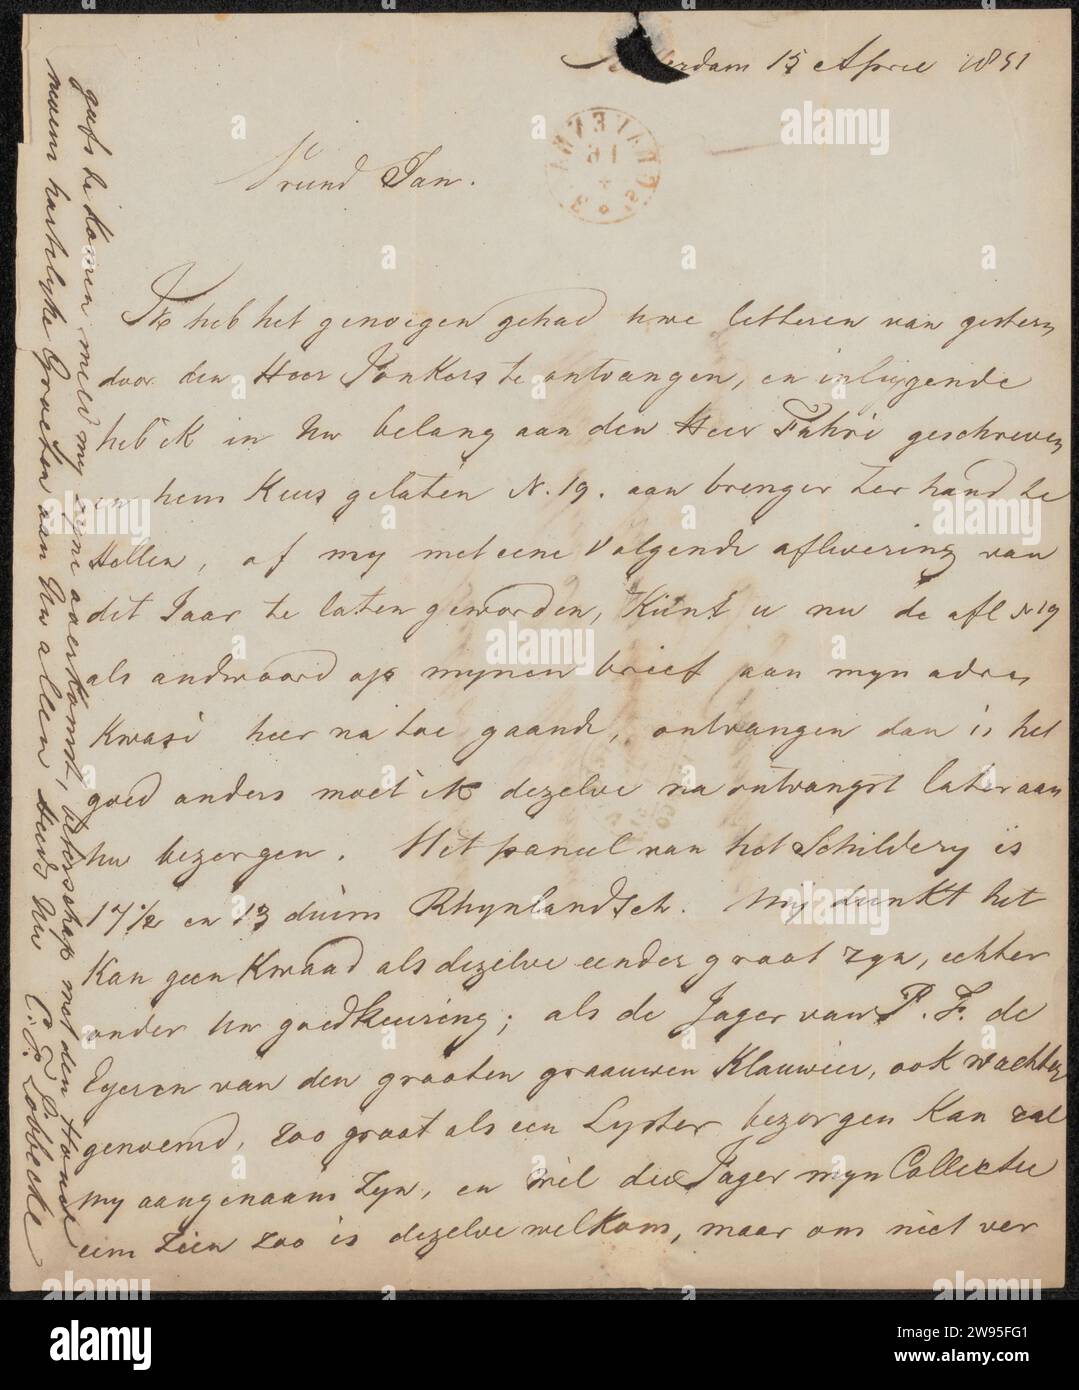 erdam 15 April 1851
Vrund Jan.
Ik heb het genoegen gehad uwe letteren van gistern
door den Heer Jonkers te ontvangen, en inliggende
heb ik in Uw belang aan den Heer Fahri geschreven
en hem Keus gelaten N. 19. aan brenger ter hand te
stellen, of my met eene Volgende aflivering van
dit Jaar te laten geworden, Kunt u nu de afl N 19
als andwoord op mynen brief aan myn adres
Kwasi heer na toe gaande, ontvangen dan is het
goed anders moet ik dezelve na ontvangst later aan
Uw bezorgen. Het paneel van het Schildery is
17 1/2 en 13 duim Rhynlandsch. My dunkt het
Kan geen Kwaad als dezelve eender groot zyn, echter
onder Uw goedkeuring; als de Jager van P. F. de
Eyeren van den grooten graauwen Klauwier, ook wachter
genoemd, zoo groot als een Lyster bezorgen Kan zal
my aangenaam zyn, en wil die Jager myn Collectie
eens zien zoo is dezelve welkom, maar om niet ver
gufs te Komen meld my zyne overkomst, beterschap met den Hond
mvens hartelyke Groeten aan Uw allen steeds Uw C: F: Lobbecke
a
alamy
alamy
2W95FG1
www.alamy.com